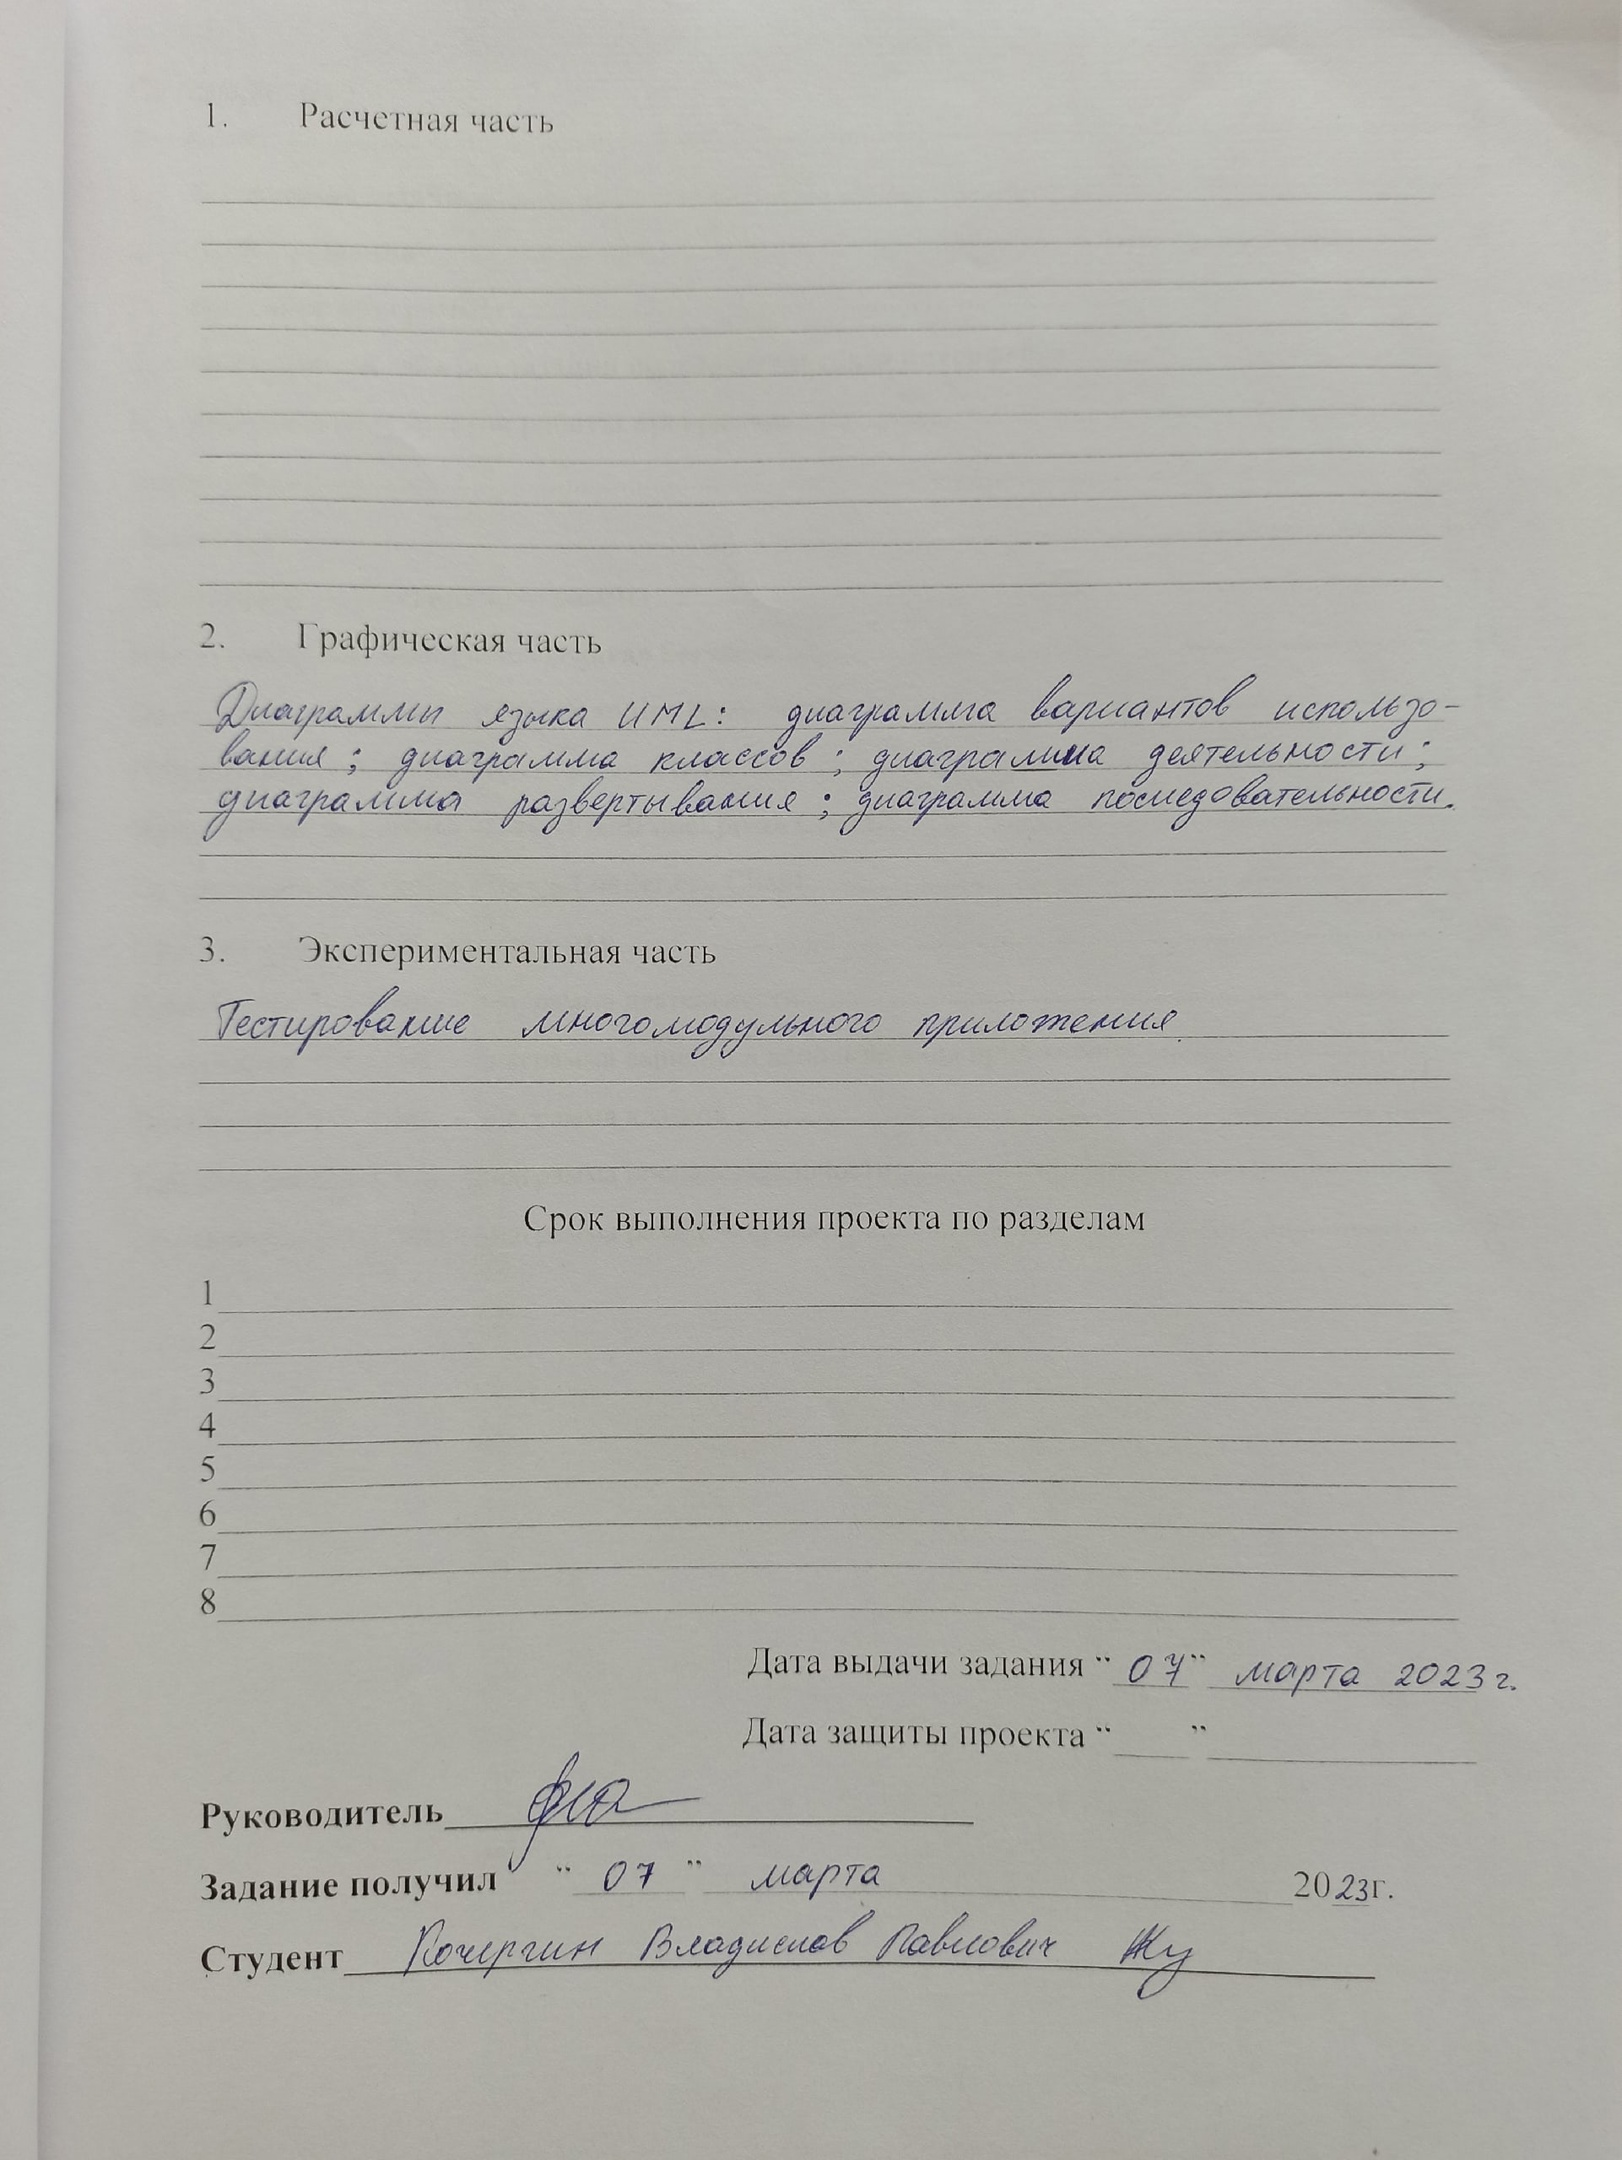 1. Расчетная часть
2. Графическая часть
Диаграммы языка UML: диаграмма вариантов использо-
вания; диаграмма классов; диаграмма деятельности;
диаграмма развертывания; диаграмма последовательности.
3. Экспериментальная часть
Тестирование многомодульного приложения.
Срок выполнения проекта по разделам
1
2
3
4
5
6
7
8
Дата выдачи задания “ 07 ” марта 2023 г.
Дата защиты проекта “ ”
Руководитель
Задание получил “ 07 ” марта 2023г.
Студент Кочергин Владислав Павлович